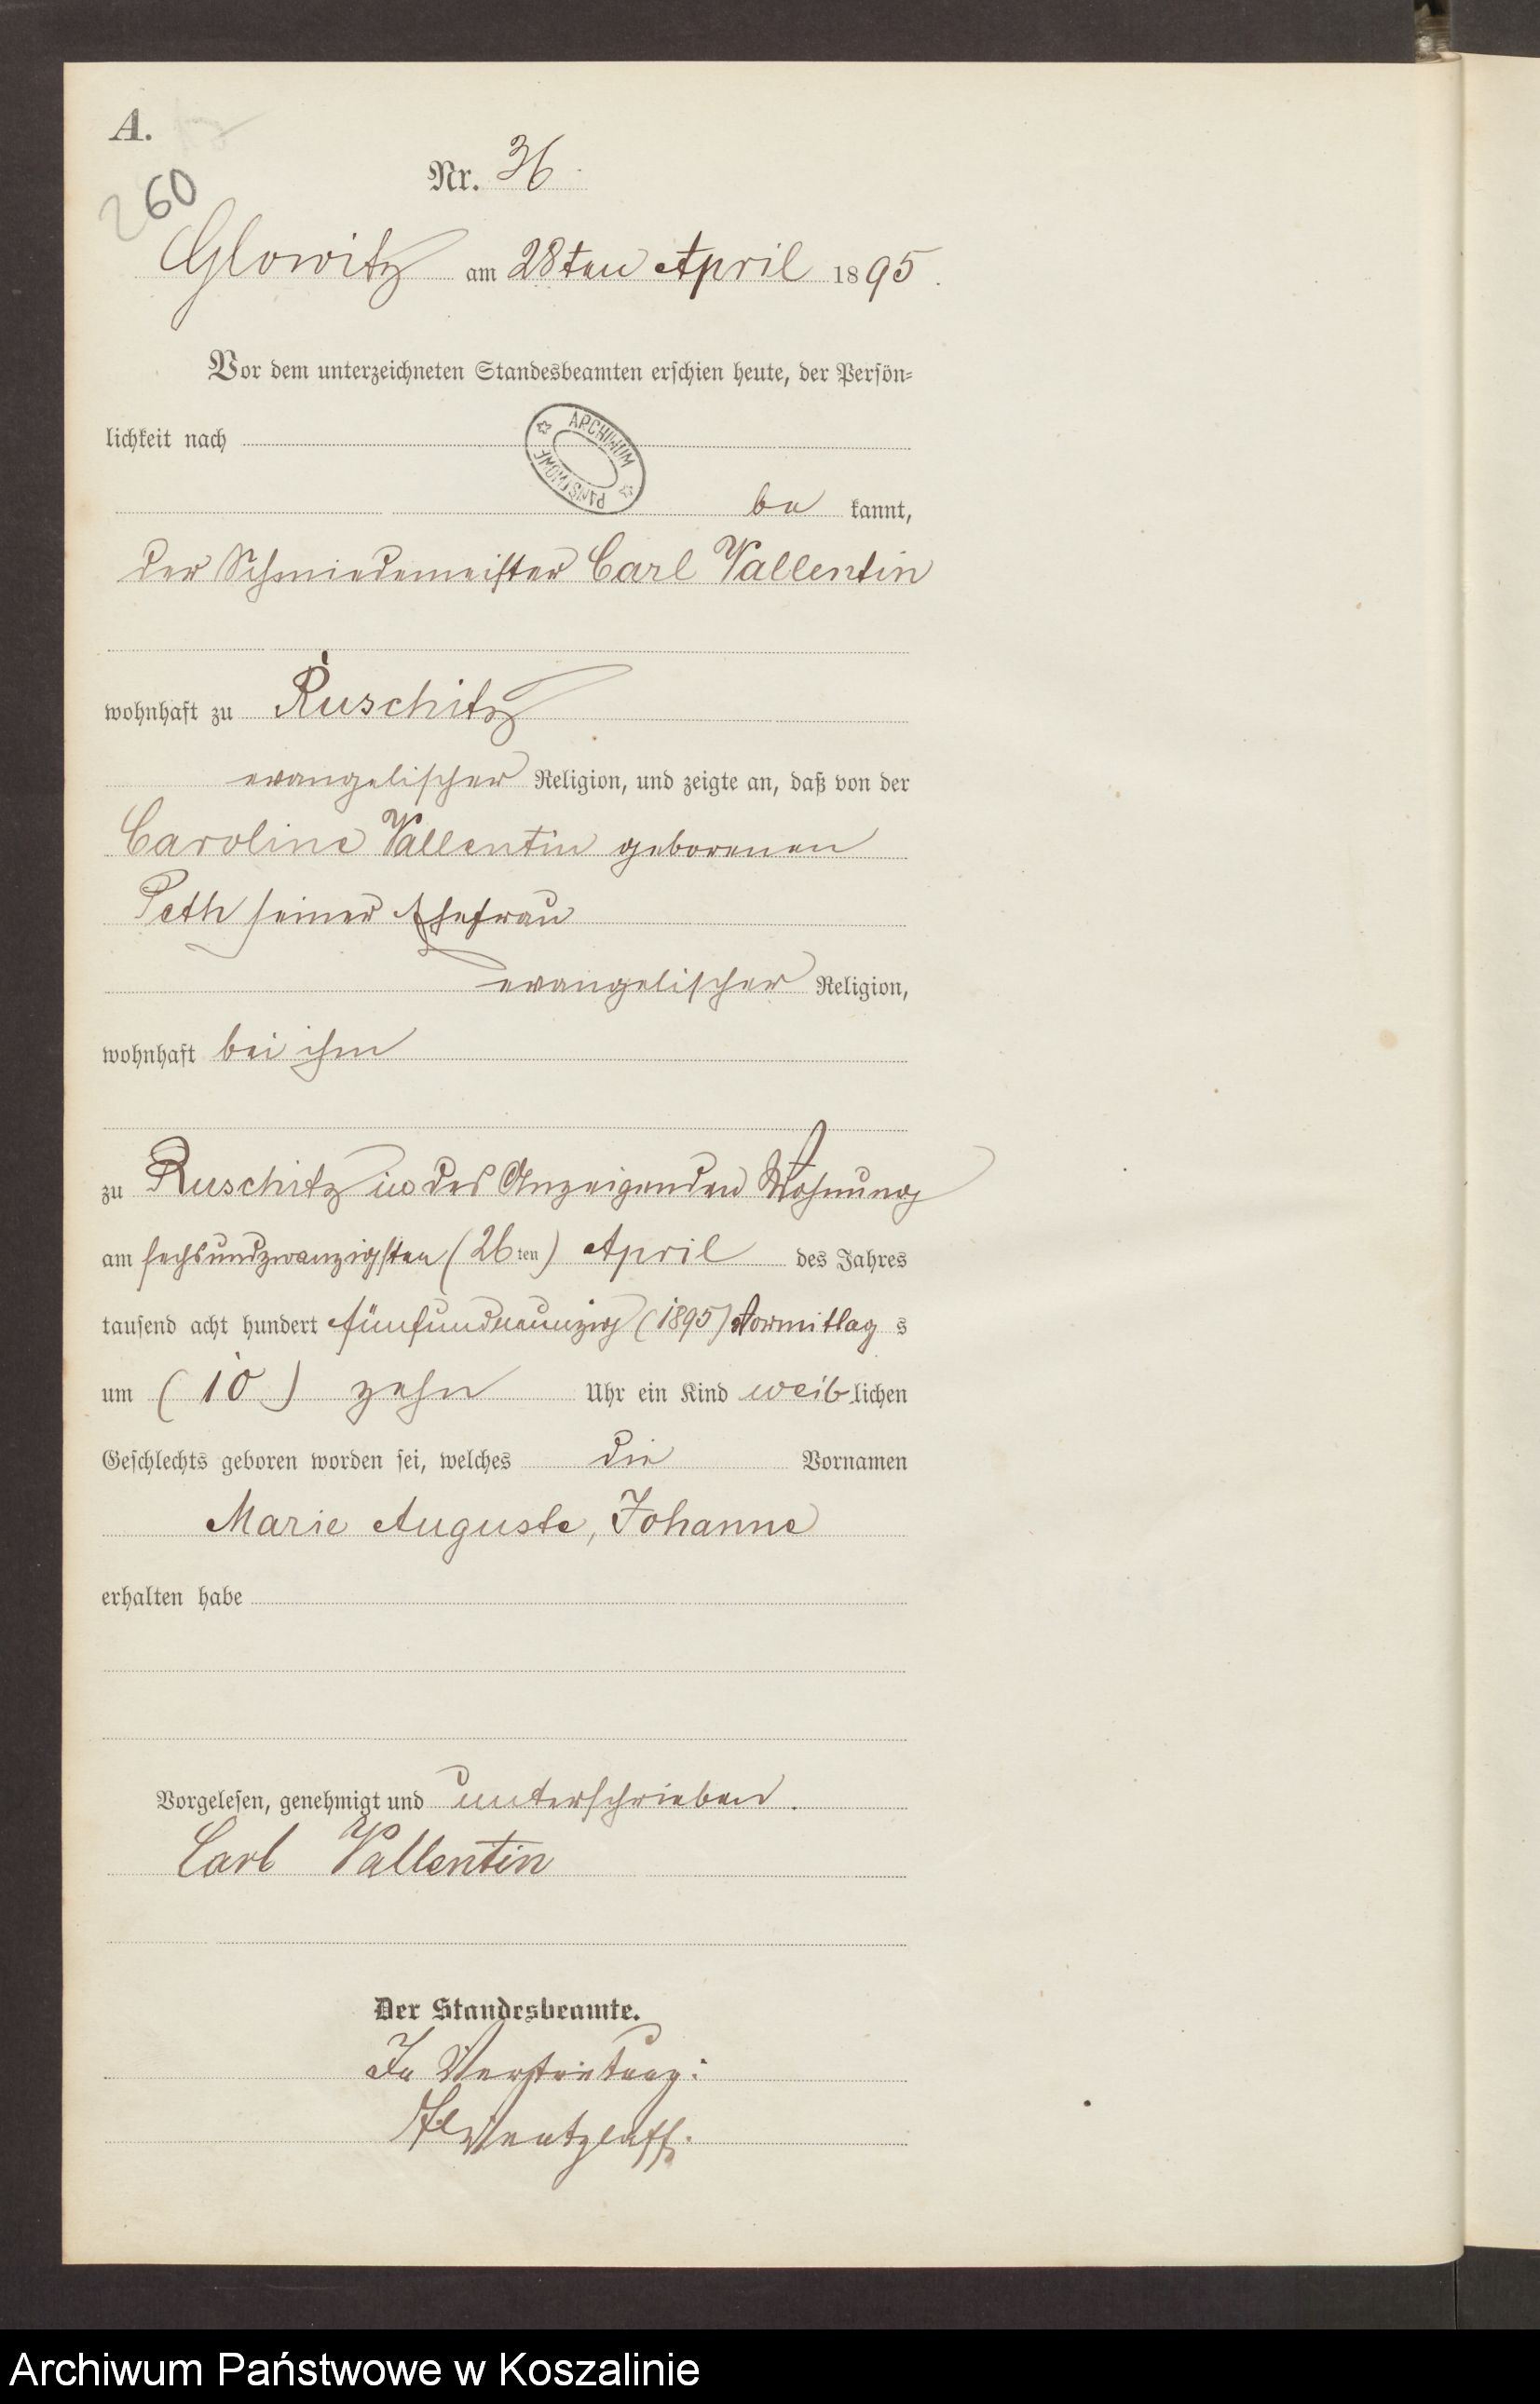 A.
260
Nr. 36.
Glowitz am 28ten April 1895.
Vor dem unterzeichneten Standesbeamten erschien heute, der Persön-
lichkeit nach
ARCHIWUM PAŃSTWOWE
be kannt,
der Schmiedemeister Carl Vallentin
wohnhaft zu Ruschitz
evangelischer Religion, und zeigte an, daß von der
Caroline Vallentin geborenen
Peth seiner Ehefrau
evangelischer Religion,
wohnhaft bei ihm
zu Ruschitz in des Anzeigenden Wohnung
am sechsundzwanzigsten (26ten) April des Jahres
tausend acht hundert fünfundneunzig (1895) Vormittag s
um (10) zehn Uhr ein Kind weiblichen
Geschlechts geboren worden sei, welches die Vornamen
Marie Auguste, Johanne
erhalten habe
Vorgelesen, genehmigt und unterschrieben.
Carl Vallentin
Der Standesbeamte.
In Vertretung:
Wentzlaff.
Archiwum Państwowe w Koszalinie